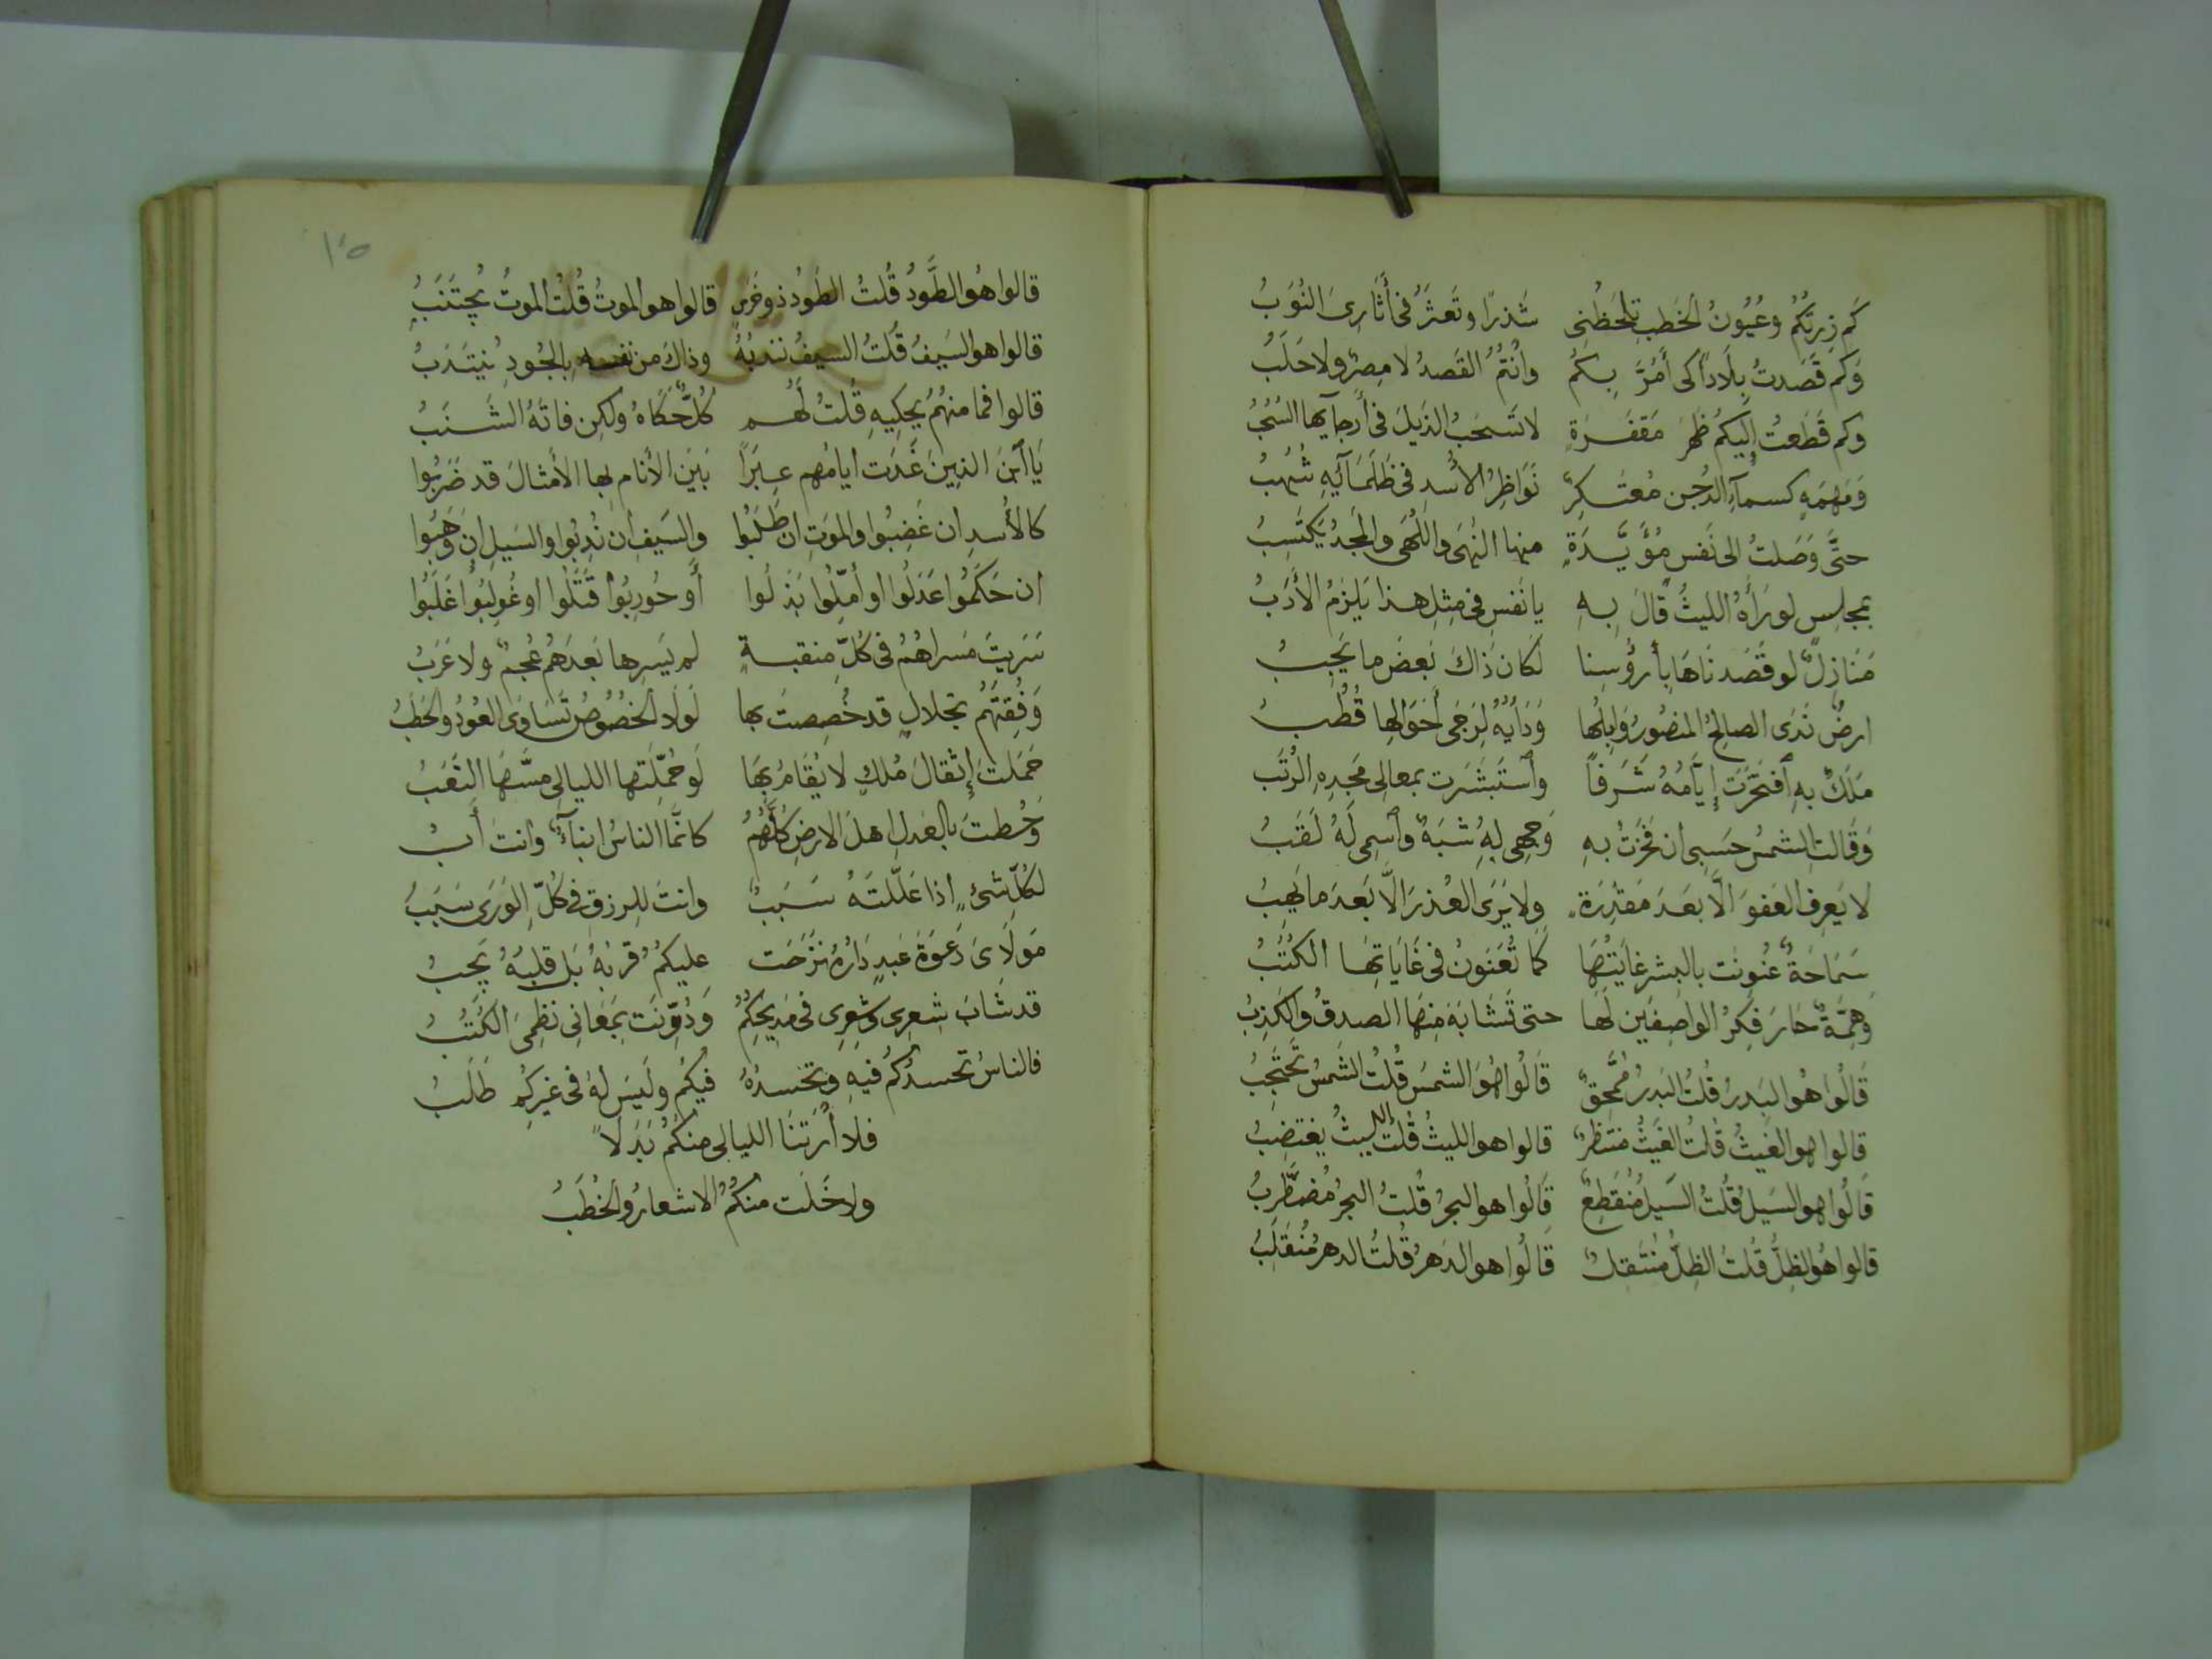 كَم زِرتُكُم وعُيُونُ الخَطبِ تَلحَظُنِى شَذرًا وتَعثرُ فى أَثَارِىَ النُوَبُ
وَكَم قَصَدتُ بِلَاداً كى أَمُرَّ بِكُم وانتُمُ القَصدُ لا مِصرٌ ولا حَلَبُ
وكم قَطَعتُ إِليكُم ظَهرَ مَقفَرَةٍ لا تَسحَبُ الذَيلَ فى أَرجآيها السُحُبُ
وَمَهمَهٍ كسمآءِ الدُجنِ مُعتَكِرٌ نَوَاظِرُ الأُسدِ فى ظَلمَآئِهِ شُهُبُ
حتَّى وَصَلتُ الى نَفسٍ مُؤَيَّدَةٍ منها النُهَى واللُهى والمجدُ يَكتَسِبُ
بمجلسٍ لو رَأَهُ الليثُ قَالَ بِهِ يا نَفسِ فى مِثلِ هذا يَلزَمُ الأَدَبُ
مَنَازِلٌ لو قَصَدنَاهَا بِأَرؤُسِنا لكان ذَاكَ بَعضَ ما يَجِبُ
ارضٌ نَدَى الصالِحُ المنصُورُ وَابِلُها وَدَأيُهُ لِرَحَى أَحوَالِها قُطُبُ
مَلَكٌ بهِ أفتَخَرَت إِيَّامُهُ شَرَفاً وأستَبشَرَت بمعالِى مَجدِهِ الرُتَبُ
وَقَالَتِ الشمسُ حَسبِى ان فَخَرتُ بهِ وَجهِى لِهُ شَبَهٌ وأسِمى لَهُ لَقَبُ
لا يَعرِفُ العَفوَ الَّا بعدَ مَقدِرَةٍ ولا يَرَى العُذرَ الَّا بَعدَ ما يَهِبُ
سَمَاحَةٌ عُنوِنَت بالبِشرِ غايَتُهَا كَمَا تُعَنوَنُ فى غَايَاتِهَا الكُتُبُ
وَهِمَّةٌ حَارَ فِكرُ الواصِفِين لَها حتى تَشَابَهَ مِنهَا الصدقُ والكَذِبُ
قَالُوا هُوا البَدرُ قُلتُ البَدرُ مُمَّحِقٌ قَالُوا هُوَ الشمسُ قُلتُ الشَمسُ تَحتَجِبُ
قالوا هو الغَيثُ قُلتُ الغَيثُ مُنتَظَرٌ قالوا هو الليثُ قُلتُ الليثُ يغتَضِبُ
قَالُوا هو السَيلُ قُلتُ السَيلُ مُنقَطِعٌ قَالُوا هو البحرُ قُلتُ البحرُ مُضطَّرِبُ
قالوا هُو الظِلُّ قُلتُ الظِلُّ مُنتَقِلٌ قَالُوا هو الدَهرُ قُلتُ الدهرُ مُنقَلِبُ
١٠٥
قالوا هُو الطَّودُ قُلتُ الطَودُ ذو خَرَسٍ قالوا هو الموتُ قُلتُ الموتُ يُجتَنَبُ
قالوا هو السَيفُ قُلتُ السيفُ نندبُهُ وذاكَ من نفسهِ بالجُودِ يَنتَدِبُ
قالوا فما منهُمُ يحكِيهِ قُلتُ لَهُم كُلٌّ حَكَاهُ ولكِن فاتَهُ الشَنَبُ
يَا أبنَ الذِينَ غَدَت ايامُهم عِبَراً بَينَ الأنامِ بها الأمثالَ قد ضَرَبُوا
كالأُسدِ ان غَضِبُوا والموتِ ان طَلَبُوا والسَيفِ ان نُدِبُوا والسَيلِ ان وَهَبُوا
ان حَكَمُوا عَدَلُوا او أُمِّلُوا بَذَلُوا أَو حُورِبُوا قَتَلُوا او غُولِبُوا غَلَبُوا
سَرَيتَ مَسراهُمُ فى كُلِّ مَنقبةٍ لم يَسرِها بَعدَهُم عُجمٌ ولا عَرَبُ
وَفُقتَهُم بخلالٍ قد خُصِصتَ بها لَولَا الخُصُوصُ تَسَاوَى العُودُ والحَطَبُ
حَمَلتَ إِثقالَ مُلكٍ لا يُقَامُ بِهَا لَو حُمِّلَتها الليالِى مَسَّهَا التَعَبُ
وَحُطتَ بالعَدلِ اهلَ الارضِ كُلُّهُمُ كانَّما الناسُ ابنآءٌ وانتَ أَبُ
لكُلِّ شئٍ اذا عَلَّلتَهُ سَبَبٌ وانتَ لِلرزقِ فى كُلِّ الوَرَى سَبَبُ
مَولَاىَ دَعوَةَ عَبدٍ دَارُهُ نَزَحَت عليكُم قُربُهُ بَل قلبُهُ يَجِبُ
قد شَابَ شِعرِى وشَعرِى فى مَديحِكُمُ وَدُوِّنَت بِمَعَانِى نَظمِىَ الكُتُبُ
فالناسُ تحسدُكُم فيهِ وتحسدُهُ فيكُم ولَيسَ لهُ فى غيرِكُم طَلَبُ
فلا أَرَتنَا الليالى منكُمُ بَدَلاً
ولا خَلَت منكُمُ الاشعارُ والخُطَبُ